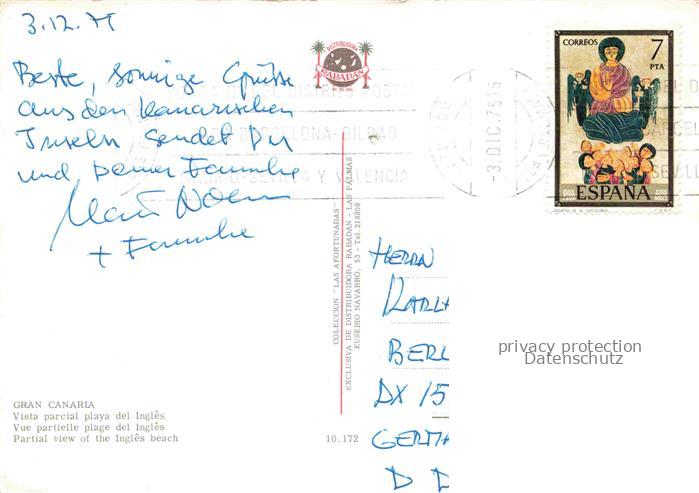 3.12.75
Beste, sonnige Grüsse
aus den kanarischen
Inseln sendet Dir
und Deiner Familie
+ Familie
DISTRIBUIDORA
RABADAN
CORREOS 7
PTA
ESPAÑA
-3.DIC.75 16
BARCELONA-BILBAO
SEVILLA Y VALENCIA
COLECCION "LAS AFORTUNADAS"
EXCLUSIVA DE DISTRIBUIDORA RABADAN - LAS PALMAS
EUSEBIO NAVARRO, 53 - Tel. 218808
HERRN
KARL
BERL
DX 15
GERM
D D
privacy protection
Datenschutz
GRAN CANARIA
Vista parcial playa del Inglés
Vue partielle plage del Inglés
Partial view of the Inglés beach
10.172